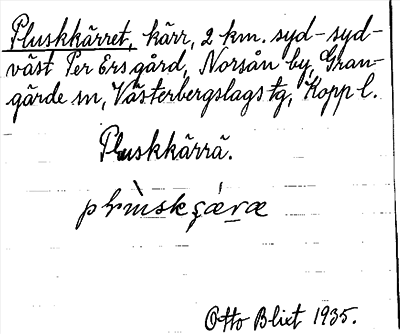 Pluskkärret, kärr, 2 km. syd-syd-
väst Per Ers gård, Norsån by, Gran-
gärde sn, Västerbergslags tg, Kopp l.
Pluskkärrä.
Otto Blixt 1935.